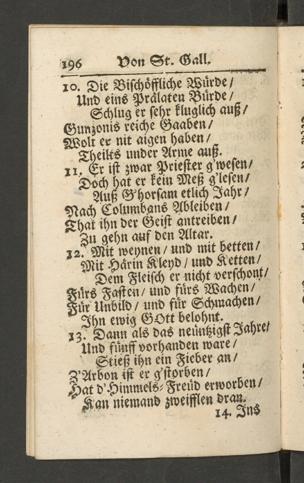 196 Von St. Gall.
10. Die Bischöffliche Würde /
Und eins Prälaten Bürde /
Schlug er sehr kluglich auß /
Gunzonis reiche Gaaben /
Wolt er nit aigen haben /
Theilts under Arme auß.
11. Er ist zwar Priester g'wesen /
Doch hat er kein Meß g'lesen /
Auß G'horsam etlich Jahr /
Nach Columbans Ableiben /
That ihn der Geist antreiben /
Zu gehn auf den Altar.
12. Mit weynen / und mit betten /
Mit Härin Kleyd / und Ketten /
Dem Fleisch er nicht verschont /
Fürs Fasten / und fürs Wachen /
Für Unbild / und für Schmachen /
Ihn ewig GOtt belohnt.
13. Dann als das neüntzigst Jahre /
Und fünff vorhanden ware /
Stieß ihn ein Fieber an /
Z'Arbon ist er g'storben /
Hat d'Himmels-Freüd erworben /
Kan niemand zweifflen dran.
14. Ins